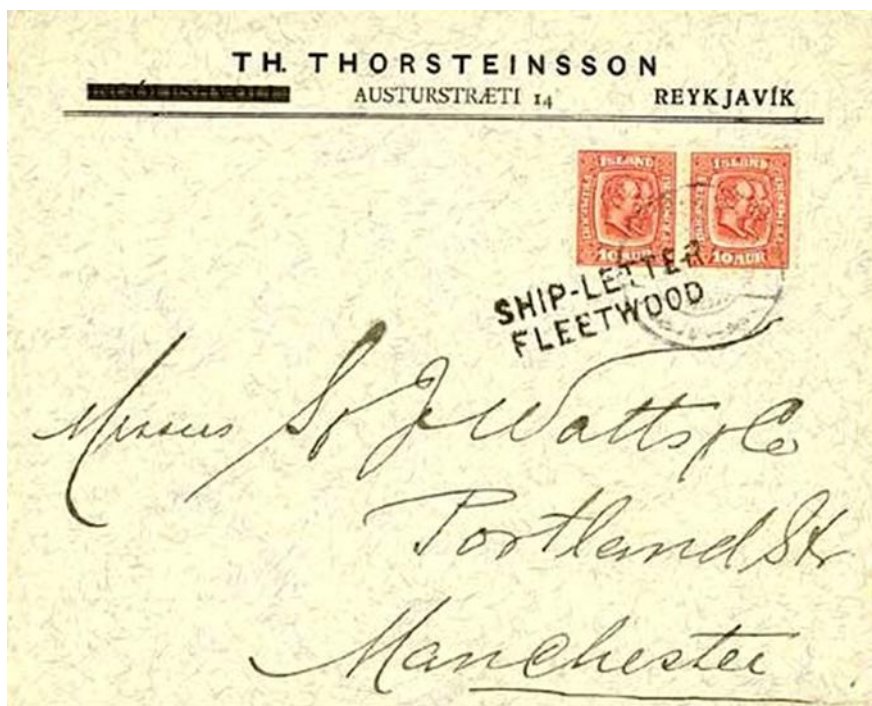 TH. THORSTEINSSON
AUSTURSTRÆTI 14 REYKJAVÍK
ÍSLAND ÍSLAND
10 AUR 10 AUR
SHIP-LETTER
FLEETWOOD
Messrs S & J Watts & Co
Portland Str
Manchester